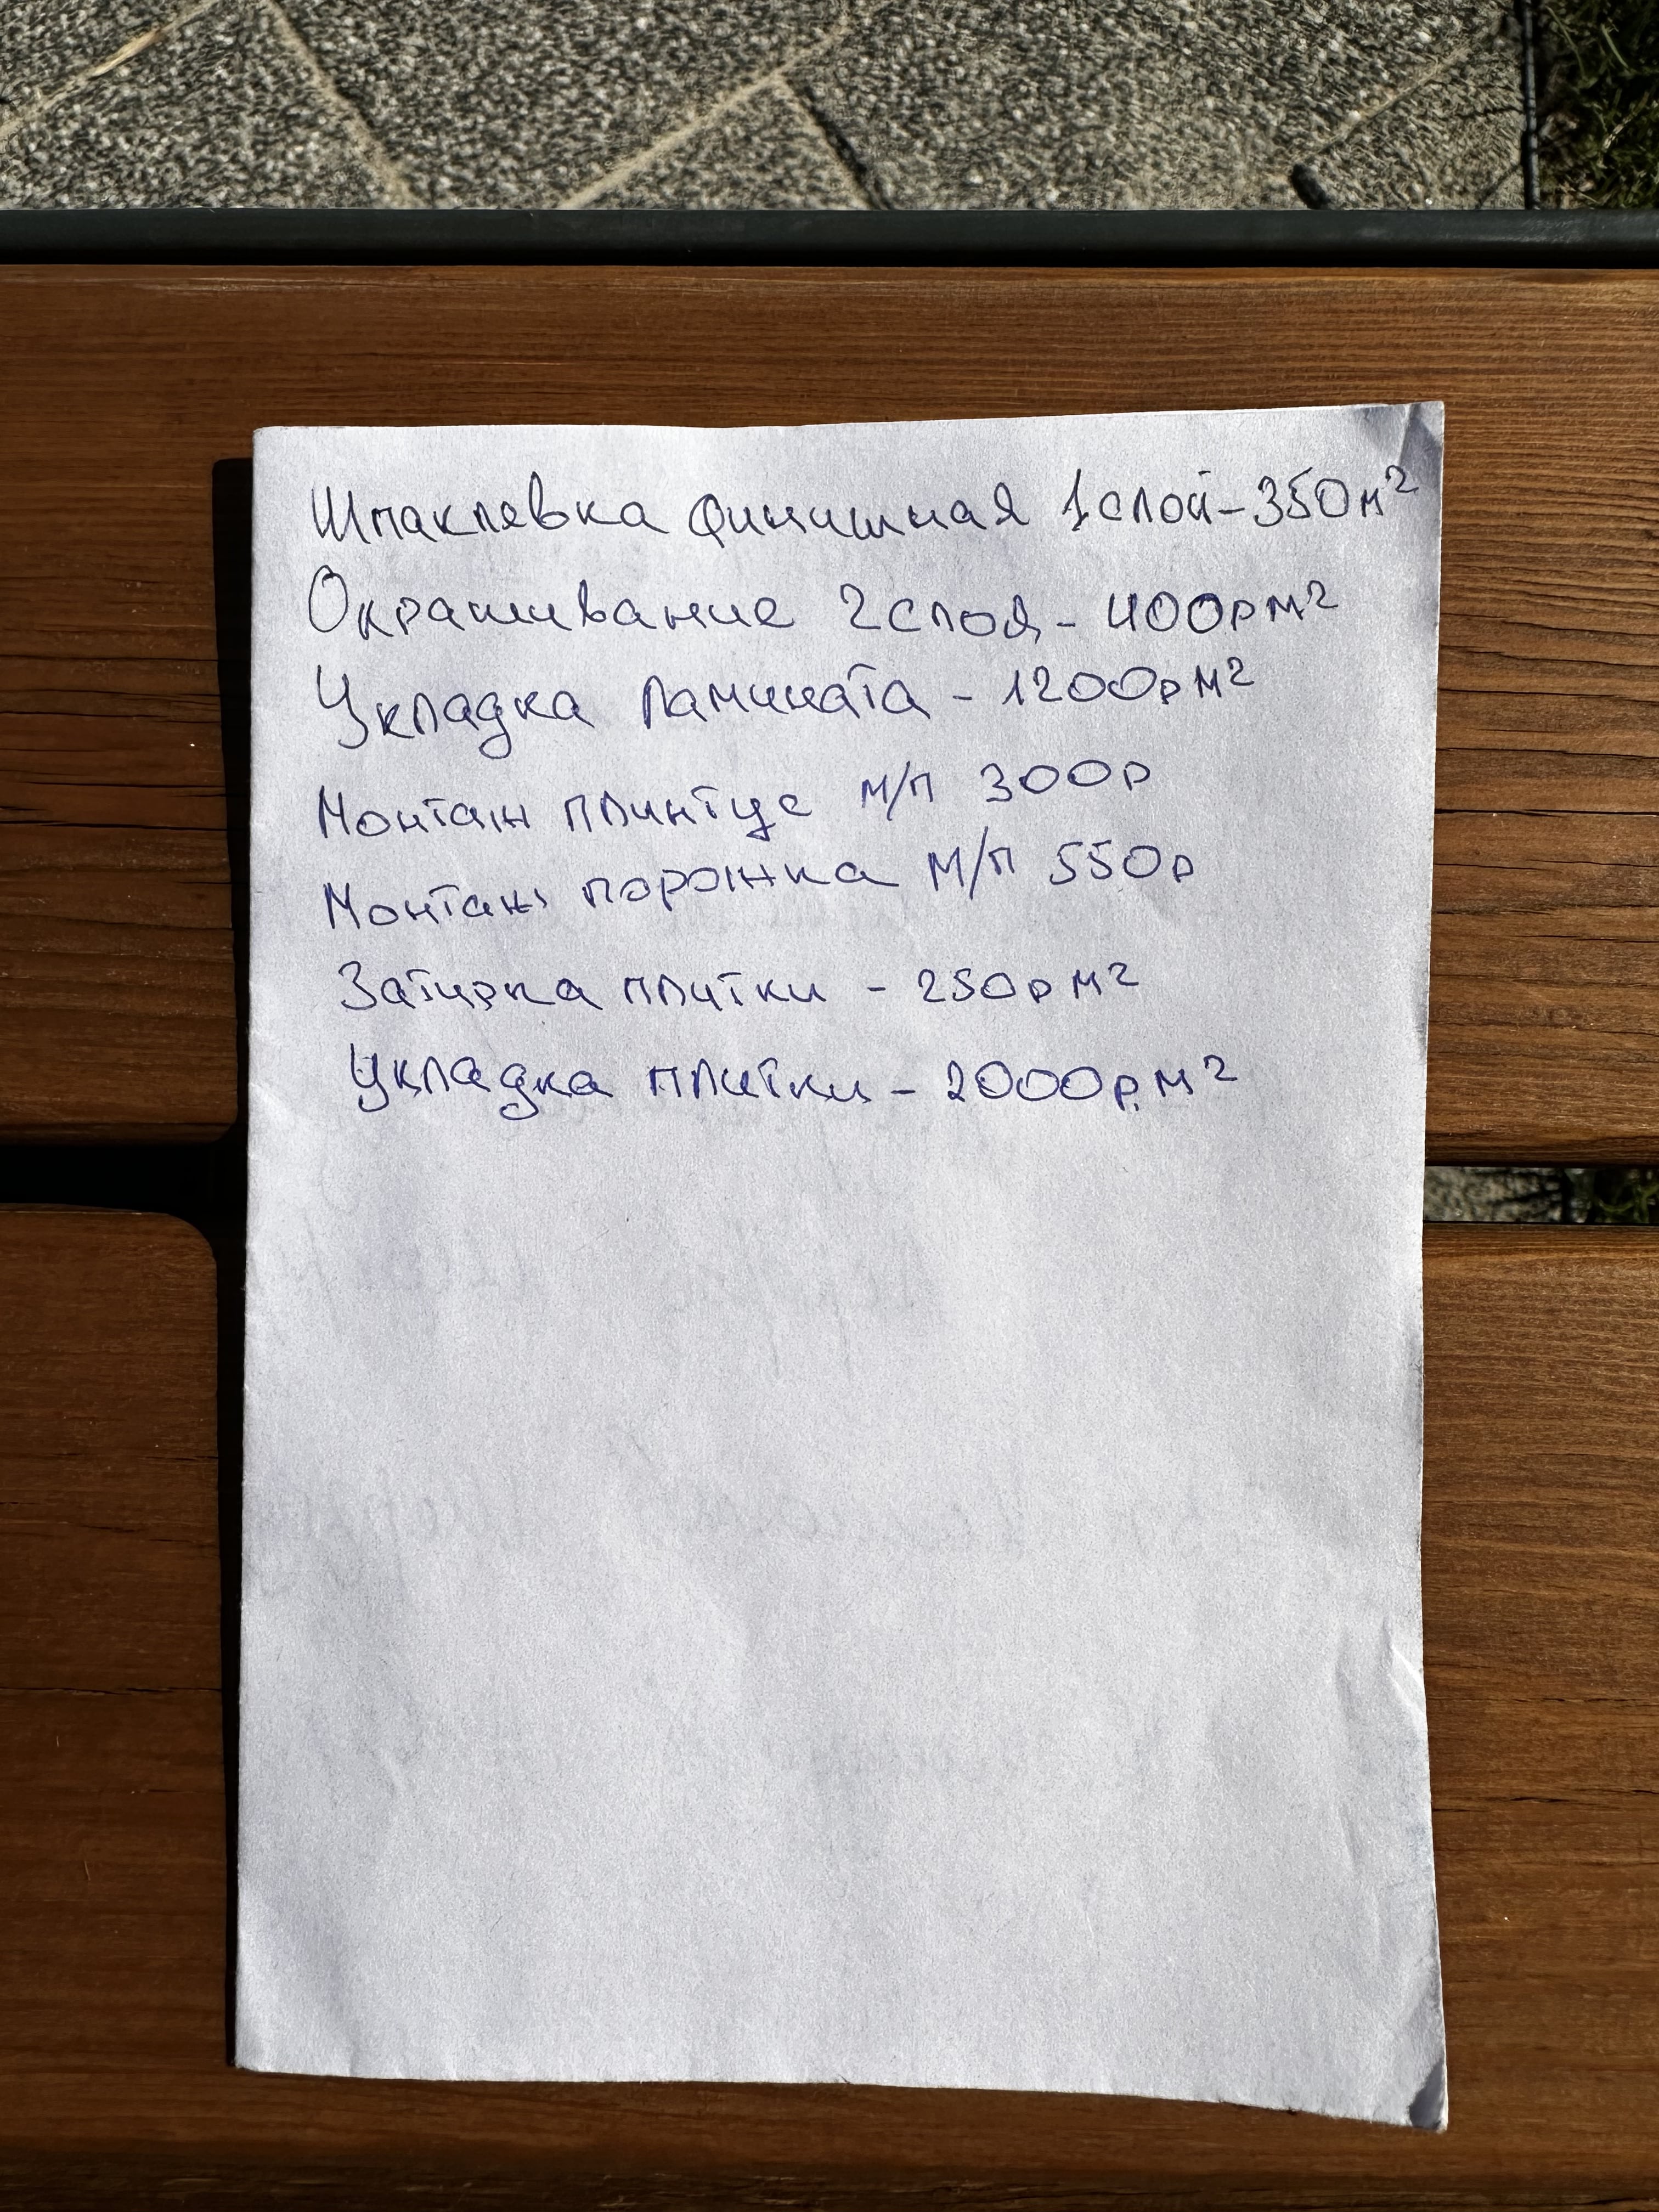 Шпаклевка финишная 1 слой - 350 м²
Окрашивание 2 слоя - 400р м²
Укладка ламината - 1200р м²
Монтаж плинтус м/п 300р
Монтаж порожка м/п 550р
Затирка плитки - 250р м²
Укладка плитки - 2000р. м²